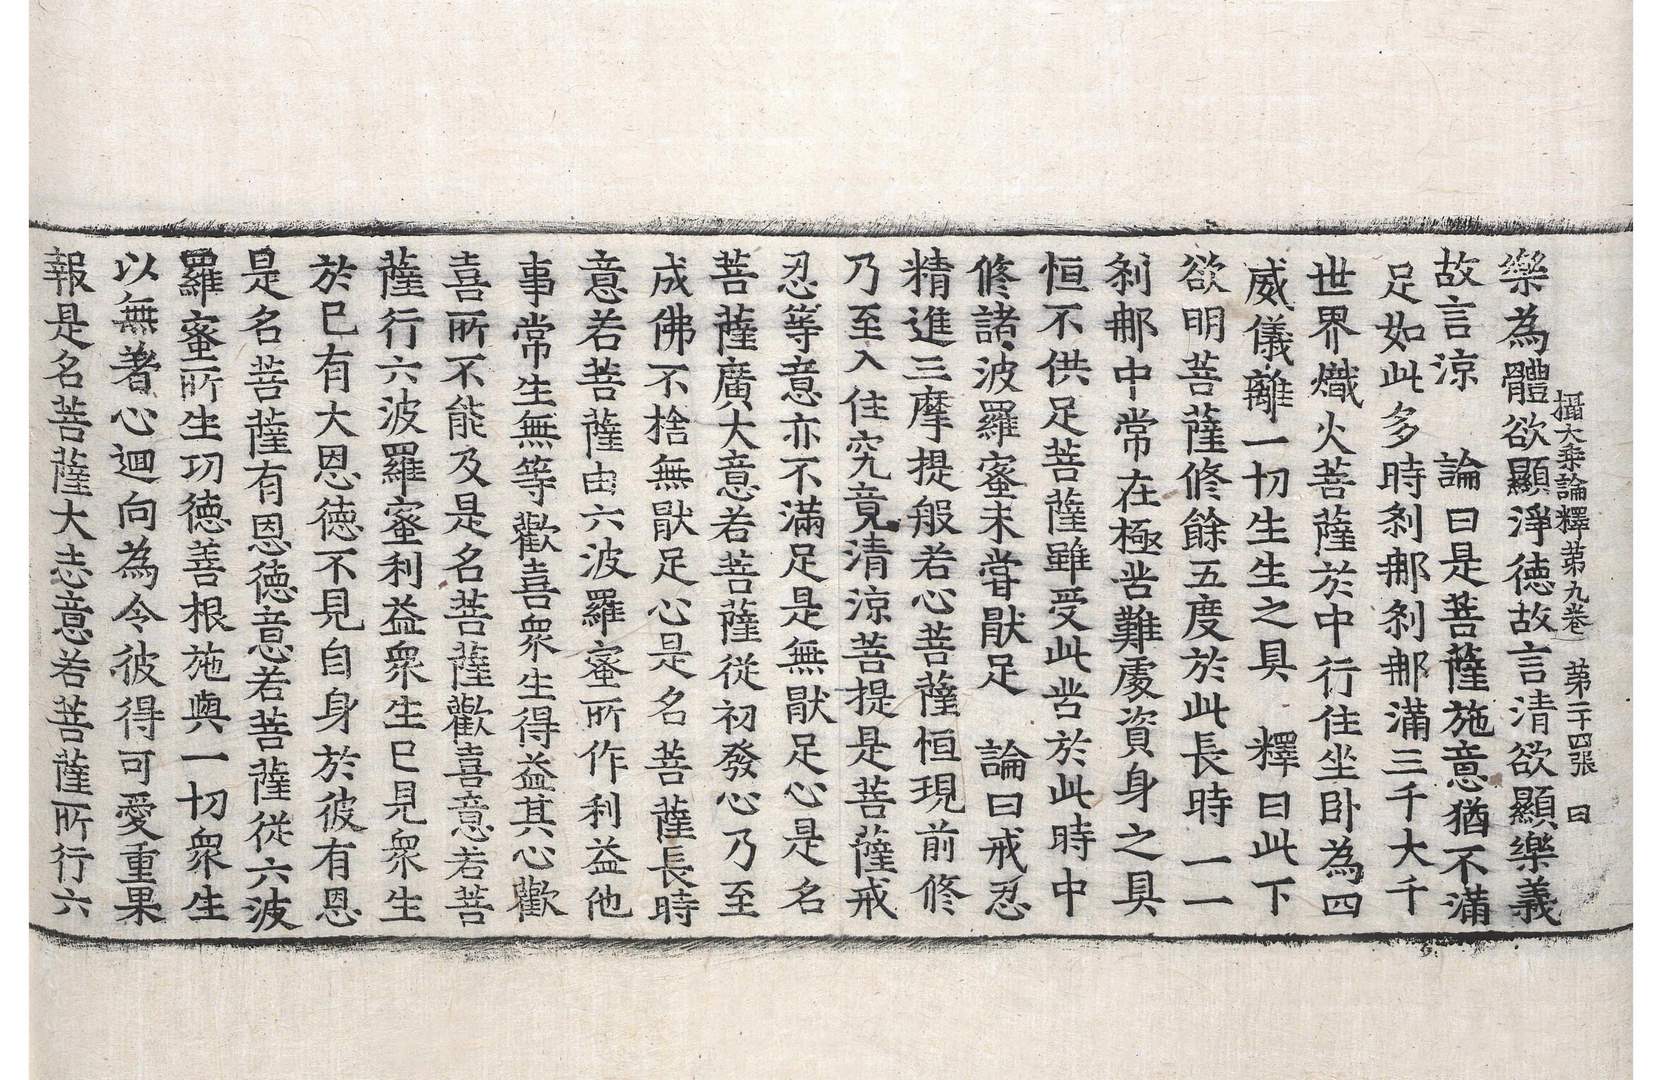 攝大乗論釋苐九卷　苐二十四張　曰
樂為體欲顯淨徳故言清欲顯樂義
故言涼　論曰是菩薩施意猶不滿
足如此多時刹那刹那滿三千大千
世界熾火菩薩於中行住坐卧為四
威儀離一切生生之具　釋曰此下
欲明菩薩修餘五度於此長時一一
刹那中常在極苦難處資身之具
恒不供足菩薩雖受此苦於此時中
修諸波羅蜜未甞猒足　論曰戒忍
精進三摩提般若心菩薩恒現前修
乃至入住究竟清涼菩提是菩薩戒
忍等意亦不滿足是無猒足心是名
菩薩廣大意若菩薩從初發心乃至
成佛不捨無猒足心是名菩薩長時
意若菩薩由六波羅蜜所作利益他
事常生無等歡喜衆生得益其心歡
喜所不能及是名菩薩歡喜意若菩
薩行六波羅蜜利益衆生已見衆生
於已有大恩徳不見自身於彼有恩
是名菩薩有恩徳意若菩薩從六波
羅蜜所生功徳善根施與一切衆生
以無著心迴向為令彼得可愛重果
報是名菩薩大志意若菩薩所行六